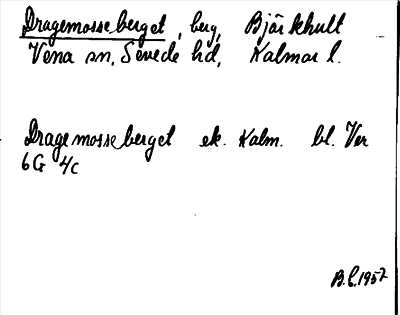 Dragemosseberget, berg, Björkhult
Vena sn, Sevede hd, Kalmar l.
Dragemosseberget ek. Kalm. bl. Ver
6G 4c
B.L. 1957